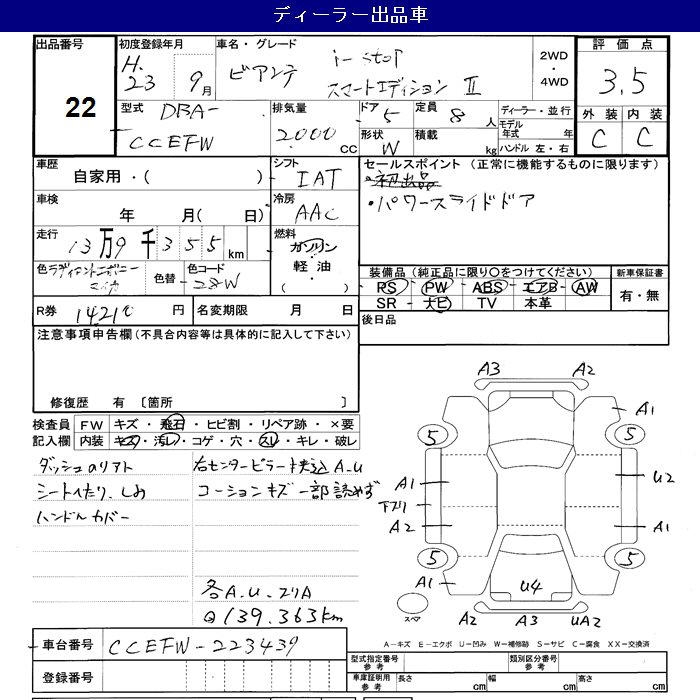 ディーラー出品車
出品番号
22
初度登録年月
H.
23 9月
車名・グレード
ビアンテ
i-stop
スマートエディション Ⅱ
2WD
・
4WD
評価点
3.5
外装 内装
C C
型式
DBA-
CCEFW
排気量
2000 CC
ドア 5
定員 8 人
形状 W
積載 kg
ディーラー・並行
モデル年式 年
ハンドル 左・右
車歴
自家用・( )
シフト
IAT
車検
年 月( 日)
冷房
AAC
走行
13万9千355km
燃料
ガソリン
軽油・
( )
色 ラディアントエボニーマイカ
色替
色コード
28W
R券 円
名変期限 月 日
セールスポイント (正常に機能するものに限ります)
・初出品
・パワースライドドア
装備品 (純正品に限り○をつけてください)
RS PW ABS エアB AW
SR ナビ TV 本革
新車保証書
有・無
後日品
注意事項申告欄 (不具合内容等は具体的に記入して下さい)
修復歴 有 〔箇所 〕
検査員記入欄
FW キズ・飛石・ヒビ割・リペア跡・×要
内装 キズ・汚レ・コゲ・穴・スレ・キレ・破レ
ダッシュのリフト
シートへたり、しみ
ハンドルカバー
右センターピラー A.U
コーションキズ 一部読めず
各A.U.
Q 139.363km
車台番号 CCEFW-223439
登録番号
A3 A2
A1
5 5
A1 U2
A2 A1
5 5
A1
U4
スペア
A2 A3 UA2
A-キズ E-エクボ U-凹み W-補修跡 S-サビ C-腐食 XX-交換済
型式指定番号 参考
類別区分番号 参考
車庫証明用 参考
長さ cm 幅 cm 高さ cm